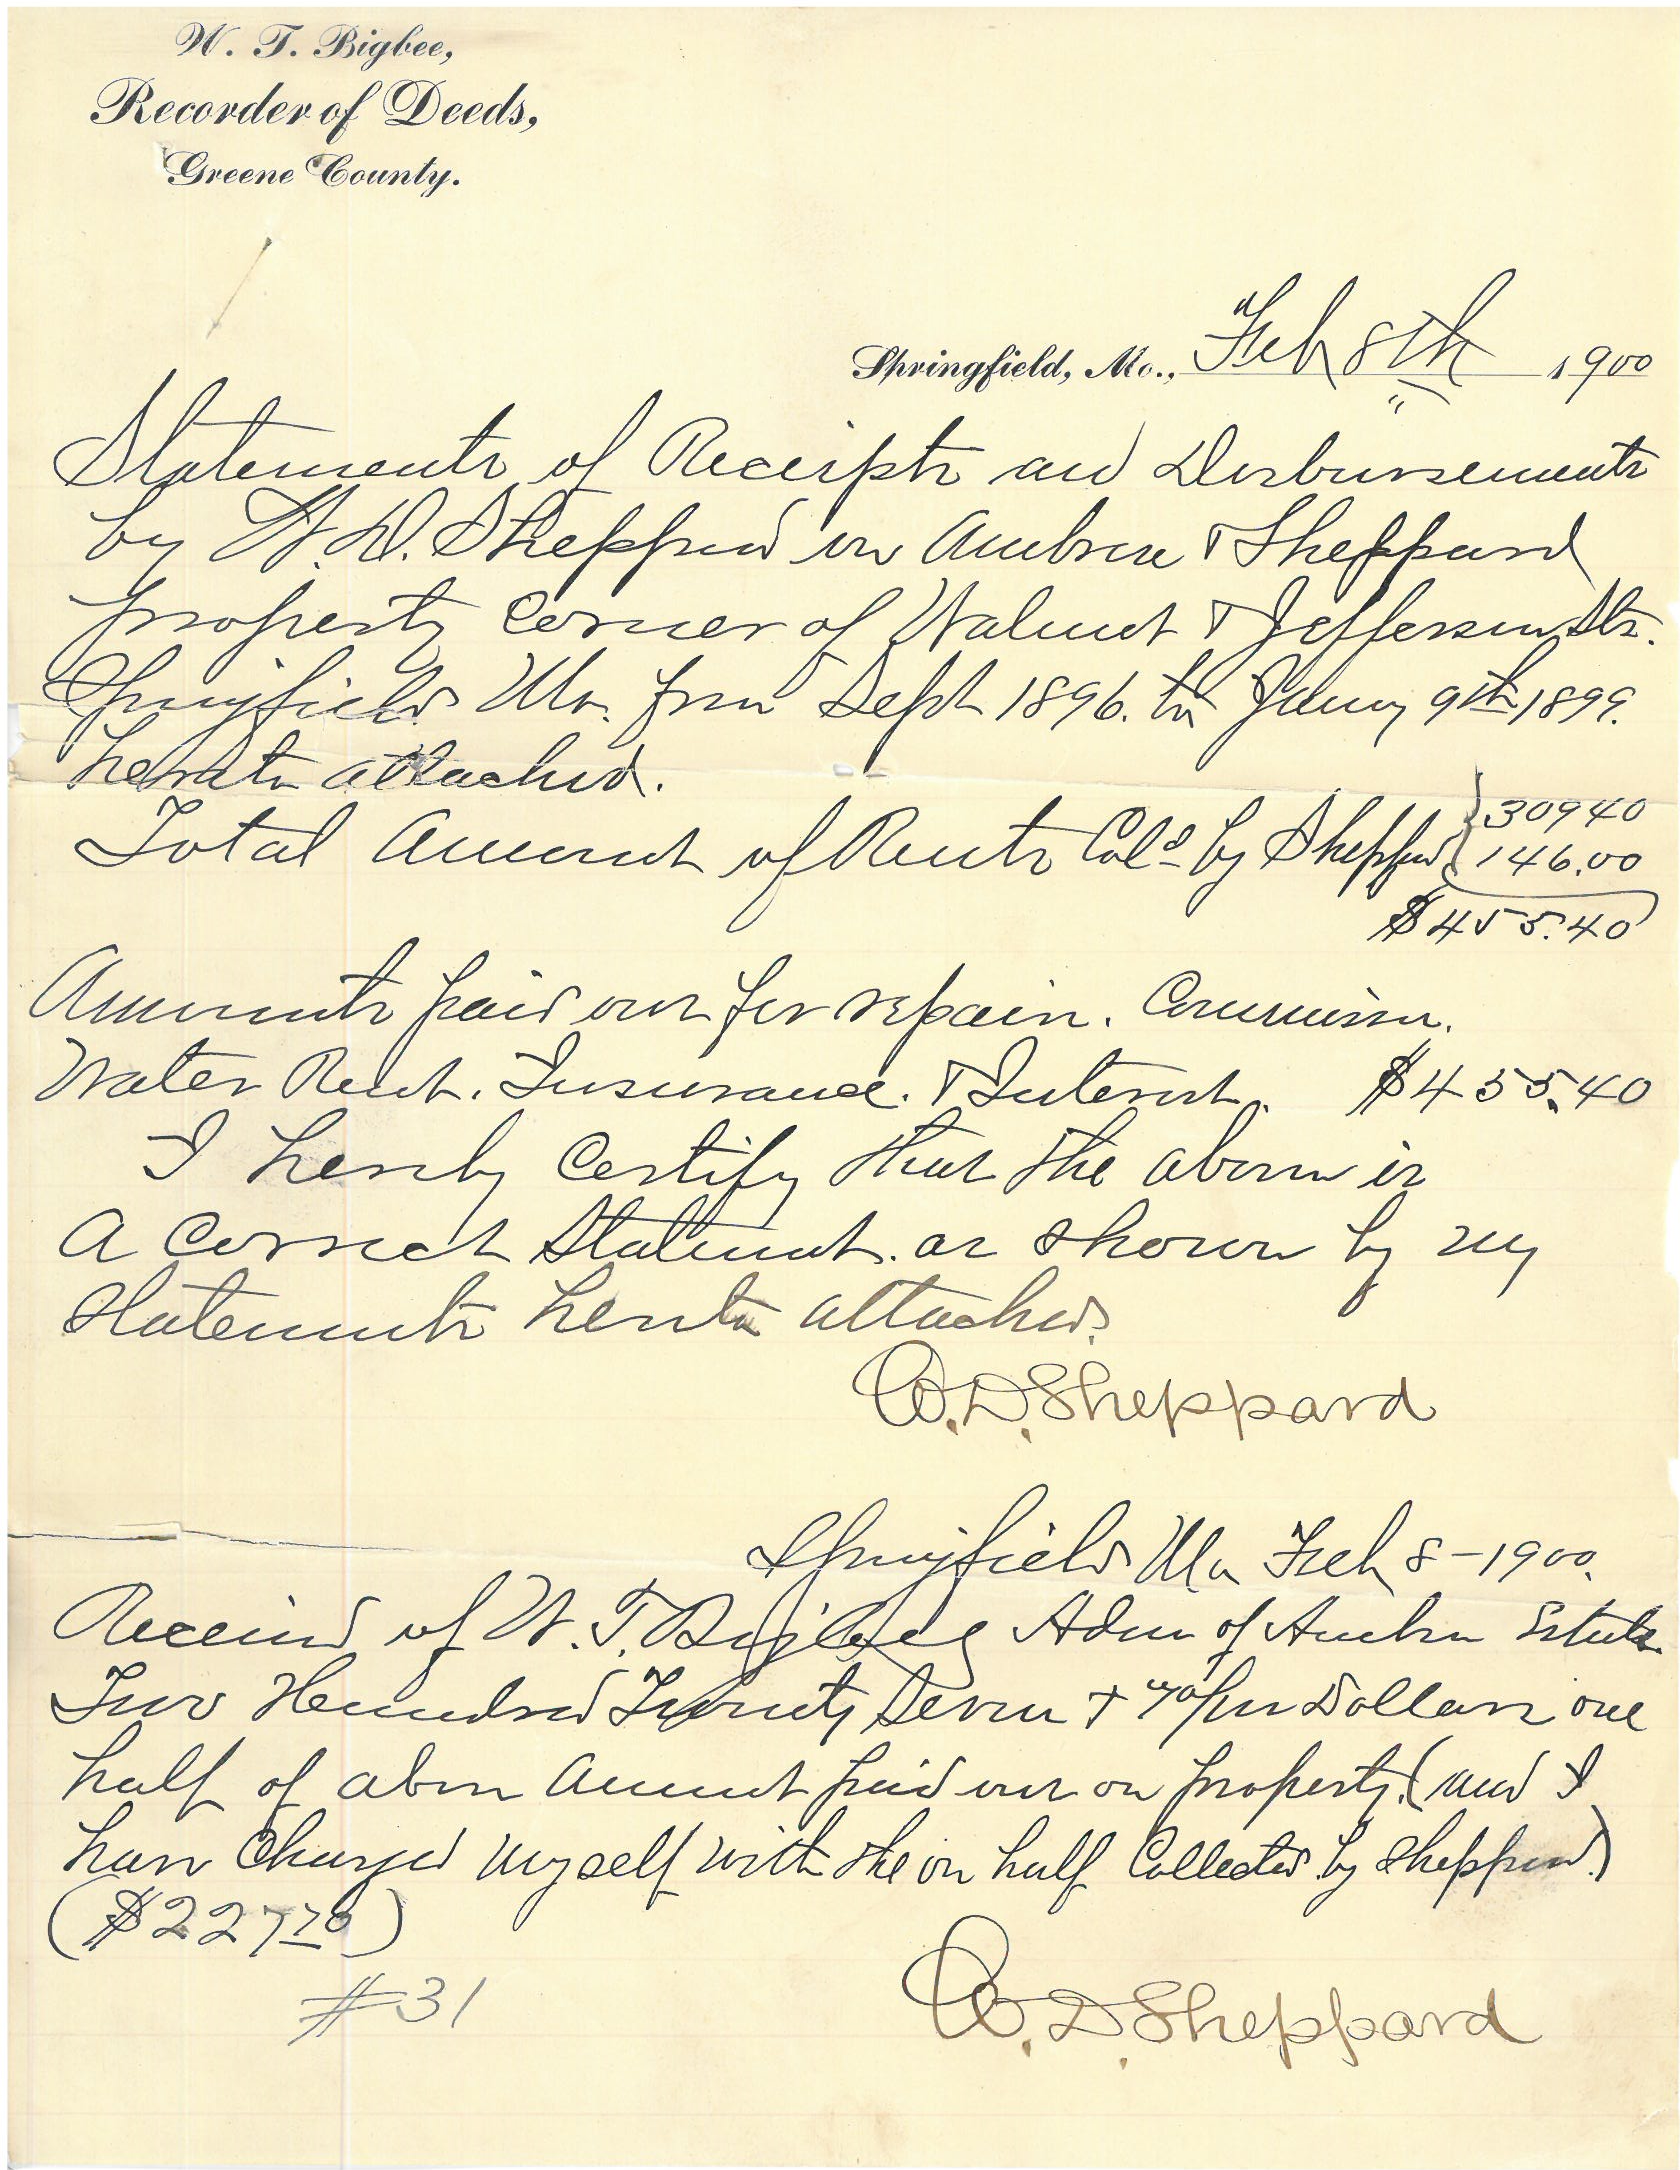 W. T. Bigbee,
Recorder of Deeds,
Greene County.
Springfield, Mo., Feb 8th 1900
Statements of Receipts and Disbursements
by W. D. Sheppard on Ambrose & Sheppard
property corner of Walnut & Jefferson Sts.
Springfield Mo. from Sept 1896. to Jany 9th 1899.
hereto attached.
Total Amount of Rents Col'd by Sheppard } 309 40
146.00
$455.40
Amounts paid out for repairs. Commission.
Water Rent. Insurance. & Interest. $455.40
I hereby Certify that the above is
a Correct Statement. as shown by my
Statements hereto attached.
W. D. Sheppard
Springfield Mo Feb 8 - 1900.
Received of W. T. Bigbee Adm of Ambrose Estate
Two Hundred Twenty Seven & 70/100 Dollars one
half of above Amount paid out on property. (and I
have Charged myself with the one half Collected by Sheppard.)
($227 70)
#31
W. D. Sheppard